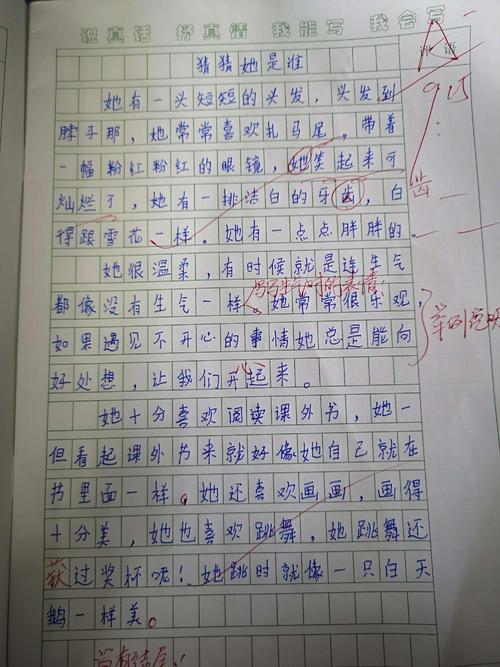 说真话 抒真情 我能写 我会写
猜猜她是谁
她有一头短短的头发，头发到
脖子那，她常常喜欢扎马尾，带着
一幅粉红粉红的眼镜，她笑起来可
灿烂了，她有一排洁白的牙齿，白
齿
得跟雪花一样。她有一点点胖胖的。
她很温柔，有时候就是连生气
写写生气时的表情！
都像没有生气一样。她常常很乐观，
如果遇见不开心的事情她总是能向
举例说明
好处想，让我们开心起来。
她十分喜欢阅读课外书，她一
但看起课外书来就好像她自己就在
书里面一样。她还喜欢画画，画得
十分美，她也喜欢跳舞，她跳舞还
获过奖杯呢！她跳时就像一只白天
鹅一样美。
没有结尾！